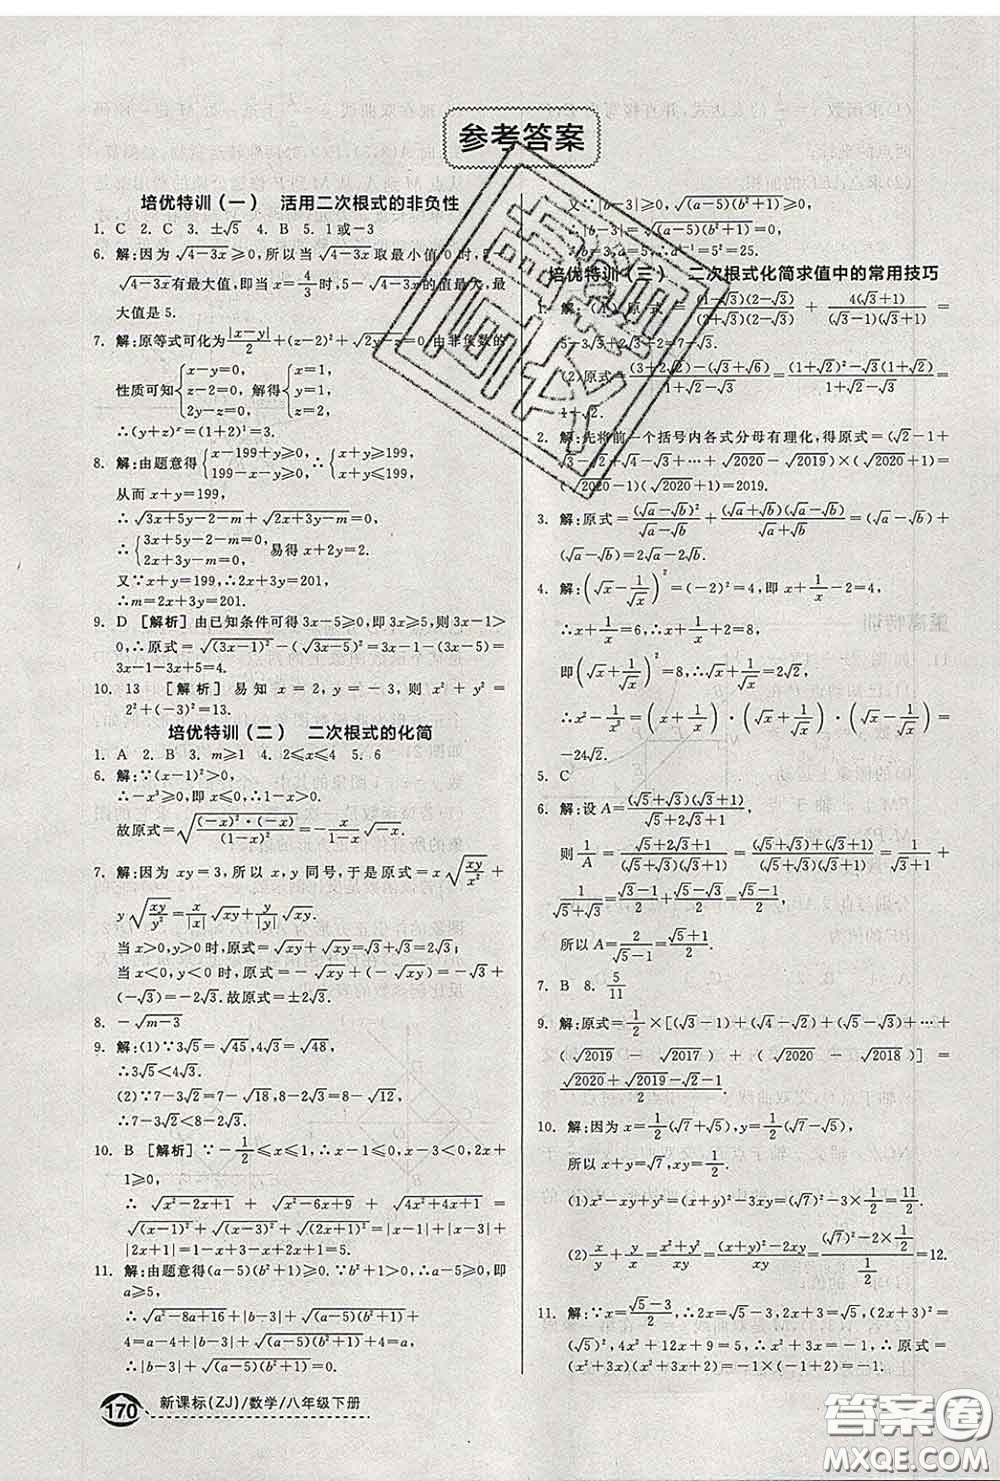 参考答案
培优特训（一） 活用二次根式的非负性
1. C 2. C 3. ±√5 4. B 5. 1或-3
6. 解:因为√(4-3x)≥0,所以当√(4-3x)取最小值0时,5-
√(4-3x)有最大值,即当x=4/3时,5-√(4-3x)的值最大,最
大值是5.
7. 解:原等式可化为|x-y|/2+(z-2)²+√(2y-z)=0,由非负数的
性质可知{x-y=0, z-2=0, 2y-z=0, 解得{x=1, y=1, z=2,
∴(y+z)ˣ=(1+2)¹=3.
8. 解:由题意得{x-199+y≥0, 199-x-y≥0, ∴{x+y≥199, x+y≤199,
从而x+y=199,
∴√(3x+5y-2-m)+√(2x+3y-m)=0,
∴{3x+5y-2-m=0, 2x+3y-m=0, 易得x+2y=2.
又∵x+y=199,∴2x+3y=201,
∴m=2x+3y=201.
9. D [解析] 由已知条件可得3x-5≥0,即3x≥5,则3x-1>
0,∴√(3x-1)²-√(3x-5)²=3x-1-(3x-5)=
3x-1-3x+5=4.
10. 13 [解析] 易知x=2,y=-3,则x²+y²=
2²+(-3)²=13.
培优特训（二） 二次根式的化简
1. A 2. B 3. m≥1 4. 2≤x≤4 5. 6
6. 解:∵(x-1)²>0,
∴-x³≥0,即x≤0,∴1-x>0.
故原式=√((-x)²·(-x)/(1-x)²)=-x/(1-x)√(-x).
7. 解:因为xy=3,所以x,y同号,于是原式=x√(xy/x²)+
y√(xy/y²)=x/|x|√(xy)+y/|y|√(xy).
当x>0,y>0时,原式=√(xy)+√(xy)=√3+√3=2√3;
当x<0,y<0时,原式=-√(xy)+(-√(xy))=-√3+
(-√3)=-2√3.故原式=±2√3.
8. -√(m-3)
9. 解:(1)∵3√5=√45,4√3=√48,
∴3√5<4√3.
(2)∵7-3√2=7-√18,8-2√3=8-√12,
∴7-3√2<8-2√3.
10. B [解析] ∵-1/2≤x≤1,∴x-1≤0,x-3<0,2x+
1≥0,
∴√(x²-2x+1)+√(x²-6x+9)+√(4x²+4x+1)=
√(x-1)²+√(x-3)²+√(2x+1)²=|x-1|+|x-3|+
|2x+1|=1-x+3-x+2x+1=5.
11. 解:由题意得(a-5)(b²+1)≥0.∵b²+1>0,∴a-5≥0,即
a≥5,
∴√(a²-8a+16)+|b-3|+√((a-5)(b²+1))+
4=a-4+|b-3|+√((a-5)(b²+1))+4=a,
∴|b-3|+√((a-5)(b²+1))=0.
又∵|b-3|≥0,√((a-5)(b²+1))≥0,
∴|b-3|=√((a-5)(b²+1))=0,
∴b=3,a=5,∴a²·b⁰=5²=25.
培优特训（三） 二次根式化简求值中的常用技巧
1. 解:(1)原式=(1-√3)(2-√3)/((2+√3)(2-√3))+4(√3+1)/((√3-1)(√3+1))=
5-3√3+2√3+2=7-√3.
(2)原式=((3+2√2)-(√3+√6))/(1+√2-√3)=((1+√2)²-√3(1+√2))/(1+√2-√3)=
1+√2.
2. 解:先将前一个括号内各式分母有理化,得原式=(√2-1+
√3-√2+√4-√3+…+√2020-√2019)×(√2020+1)=
(√2020-1)(√2020+1)=2019.
3. 解:原式=(√a-√b)²/(√a-√b)+(√a+√b)(√a-√b)/(√a+√b)=(√a-√b)+
(√a-√b)=2√a-2√b.
4. 解:(√x-1/√x)²=(-2)²=4,即x+1/x-2=4,
∴x+1/x=6,∴x+1/x+2=8,
即(√x+1/√x)²=8,∴√x+1/√x=2√2,
∴x²-1/x²=(x+1/x)·(√x+1/√x)·(√x-1/√x)=
-24√2.
5. C
6. 解:设A=(√5+√3)(√3+1)/(√5+2√3+1),
则1/A=(√5+2√3+1)/((√5+√3)(√3+1))=((√5+√3)+(√3+1))/((√5+√3)(√3+1))=1/(√3+1)+
1/(√5+√3)=(√3-1)/2+(√5-√3)/2=(√5-1)/2,
所以A=2/(√5-1)=(√5+1)/2.
7. B 8. 5/11
9. 解:原式=1/2×[(√3-1)+(√4-√2)+(√5-√3)+…+
(√2019-√2017)+(√2020-√2018)]=
(√2020+√2019-√2-1)/2.
10. 解:因为x=1/2(√7+√5),y=1/2(√7-√5),
所以x+y=√7,xy=1/2.
(1)x²-xy+y²=(x+y)²-3xy=(√7)²-3×1/2=11/2.
(2)y/x+x/y=(x²+y²)/xy=((x+y)²-2xy)/xy=((√7)²-2×1/2)/(1/2)=12.
11. 解:∵x=(√5-3)/2,∴2x=√5-3,2x+3=√5,(2x+3)²=
(√5)²,4x²+12x+9=5,∴x²+3x=-1,∴原式=
(x²+3x)(x²+3x+2)=-1×(-1+2)=-1.
170 新课标(ZJ)/数学/八年级下册
答案圈
MXQE.COM